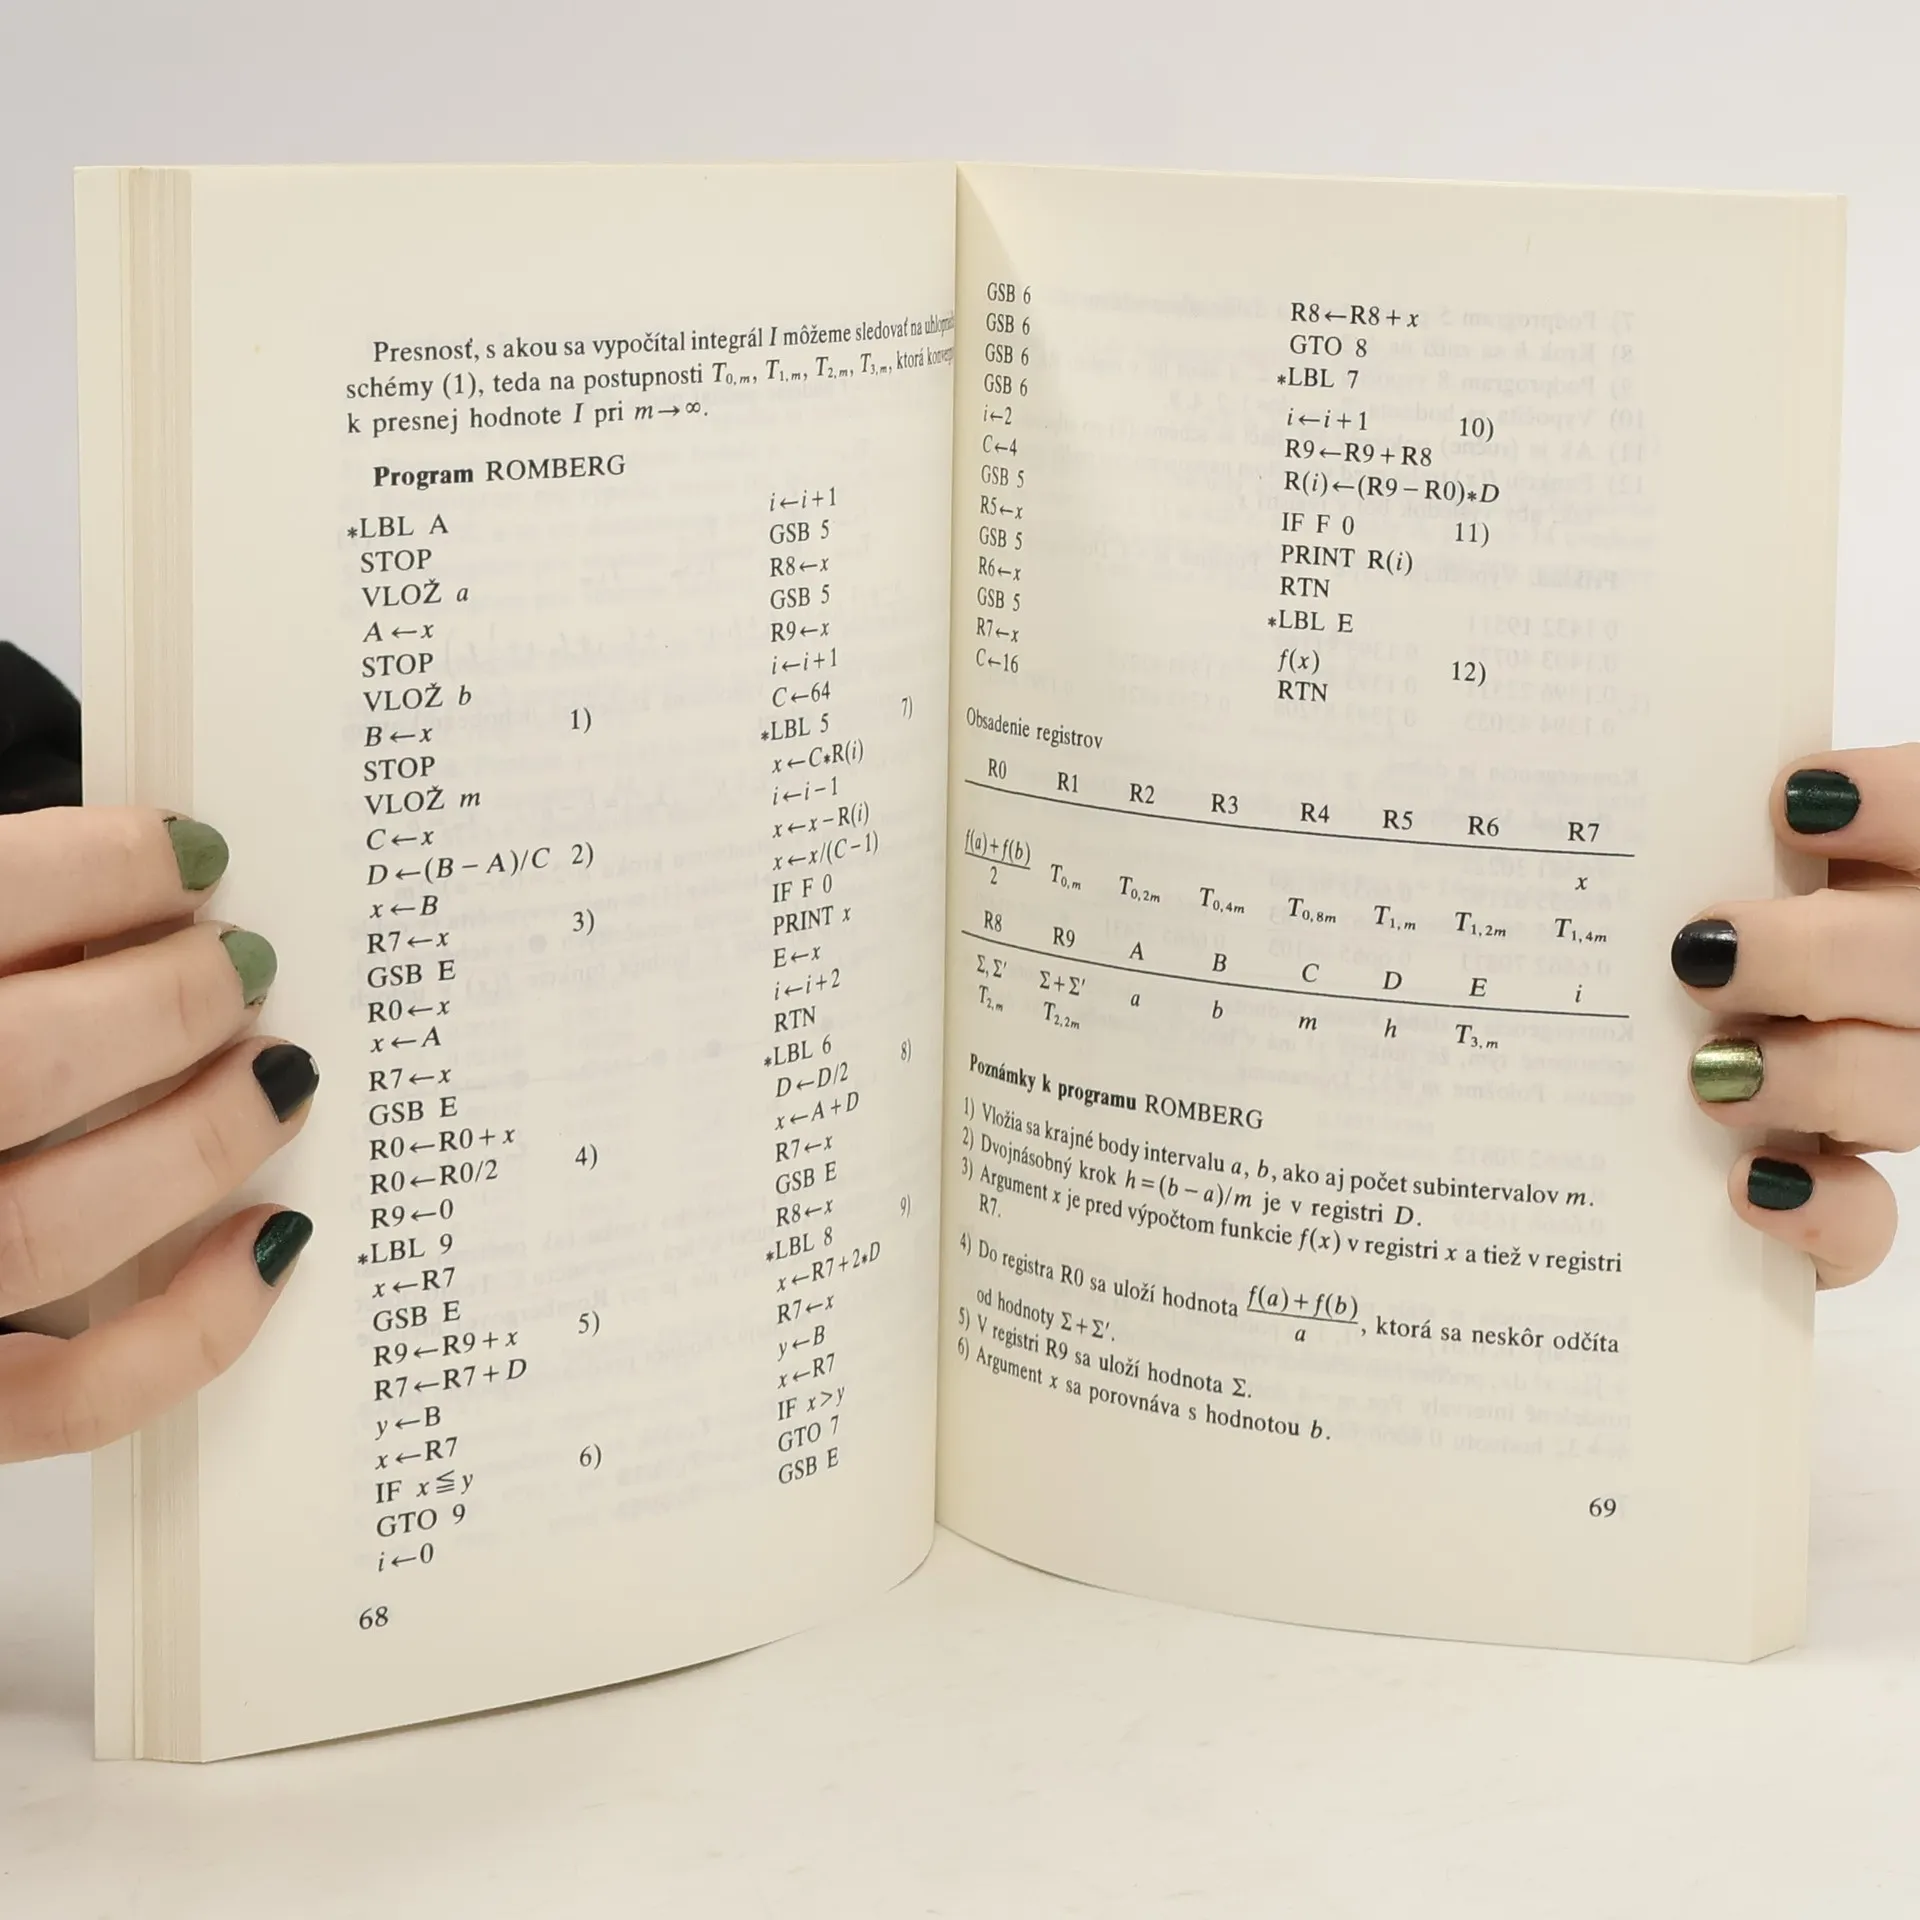 Presnosť, s akou sa vypočítal integrál I môžeme sledovať na
schémy (1), teda na postupnosti T₀,ₘ, T₁,ₘ, T₂,ₘ, T₃,ₘ, ktorá
k presnej hodnote I pri m→∞.
Program ROMBERG
*LBL A
STOP
VLOŽ a
A←x
STOP
VLOŽ b
B←x 1)
STOP
VLOŽ m
C←x
D←(B−A)/C 2)
x←B
R7←x 3)
GSB E
R0←x
x←A
R7←x
GSB E
R0←R0+x
R0←R0/2 4)
R9←0
*LBL 9
x←R7
GSB E
R9←R9+x 5)
R7←R7+D
y←B
x←R7
IF x≦y 6)
GTO 9
i←0
i←i+1
GSB 5
R8←x
GSB 5
R9←x
i←i+1
C←64
*LBL 5 7)
x←C*R(i)
i←i−1
x←x−R(i)
x←x/(C−1)
IF F 0
PRINT x
E←x
i←i+2
RTN
*LBL 6 8)
D←D/2
x←A+D
R7←x
GSB E
R8←x
*LBL 8 9)
x←R7+2*D
R7←x
y←B
x←R7
IF x>y
GTO 7
GSB E
68
GSB 6
GSB 6
GSB 6
GSB 6
i←2
C←4
GSB 5
R5←x
GSB 5
R6←x
GSB 5
R7←x
C←16
R8←R8+x
GTO 8
*LBL 7
i←i+1 10)
R9←R9+R8
R(i)←(R9−R0)*D
IF F 0 11)
PRINT R(i)
RTN
*LBL E
f(x) 12)
RTN
Obsadenie registrov
R0 R1 R2 R3 R4 R5 R6 R7
x
f(a)+f(b)
2 T₀,ₘ T₀,₂ₘ T₀,₄ₘ T₀,₈ₘ T₁,ₘ T₁,₂ₘ T₁,₄ₘ
R8 R9 A B C D E i
Σ, Σ′ Σ+Σ′ a b m h T₃,ₘ
T₂,ₘ T₂,₂ₘ
Poznámky k programu ROMBERG
1) Vložia sa krajné body intervalu a, b, ako aj počet subintervalov m.
2) Dvojnásobný krok h=(b−a)/m je v registri D.
3) Argument x je pred výpočtom funkcie f(x) v registri x a tiež v registri
R7.
4) Do registra R0 sa uloží hodnota f(a)+f(b)/a, ktorá sa neskôr odčíta
od hodnoty Σ+Σ′.
5) V registri R9 sa uloží hodnota Σ.
6) Argument x sa porovnáva s hodnotou b.
69